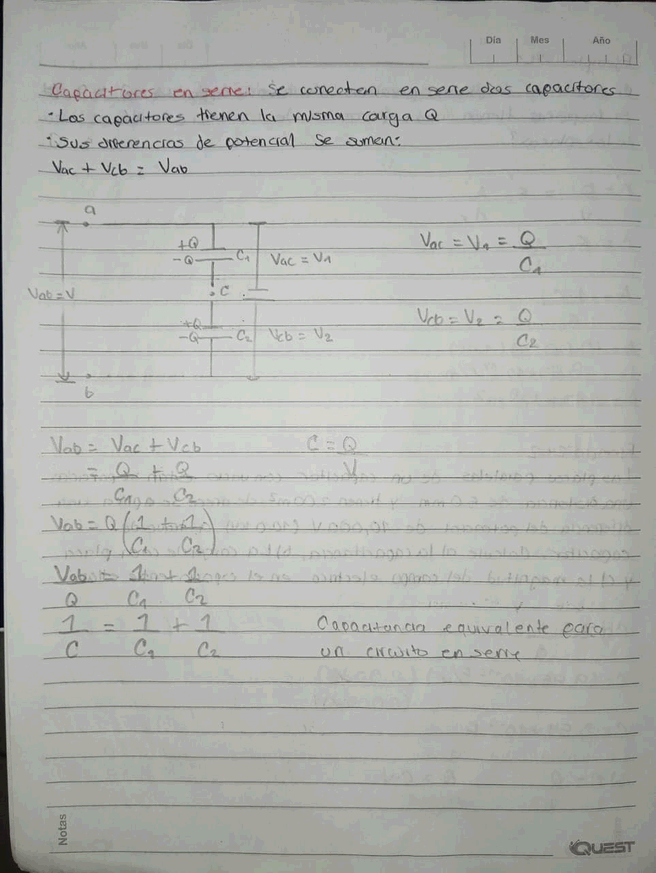 Día Mes Año
Capacitores en serie: Se conectan en serie dos capacitores
· Los capacitores tienen la misma carga Q
· Sus diferencias de potencial se suman:
Vac + Vcb = Vab
a
+Q
-Q C1 Vac = V1
Vac = V1 = Q
C1
Vab = V
C
+Q
-Q C2 Vcb = V2
Vcb = V2 = Q
C2
b
Vab = Vac + Vcb C = Q
V
= Q + Q
C1 C2
Vab = Q (1 + 1)
C1 C2
Vab = 1 + 1
Q C1 C2
1 = 1 + 1 Capacitancia equivalente para
C C1 C2 un circuito en serie
Notas
QUEST